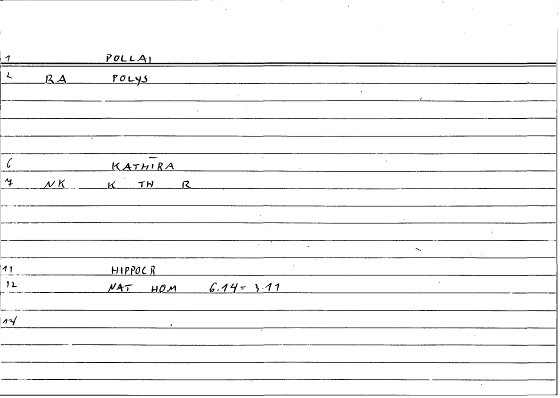 1 POLLAI
2 RA POLYS
6 KATHĪRA
7 NK K TH R
11 HIPPOCR
12 NAT HOM 6.14= 3.11
14